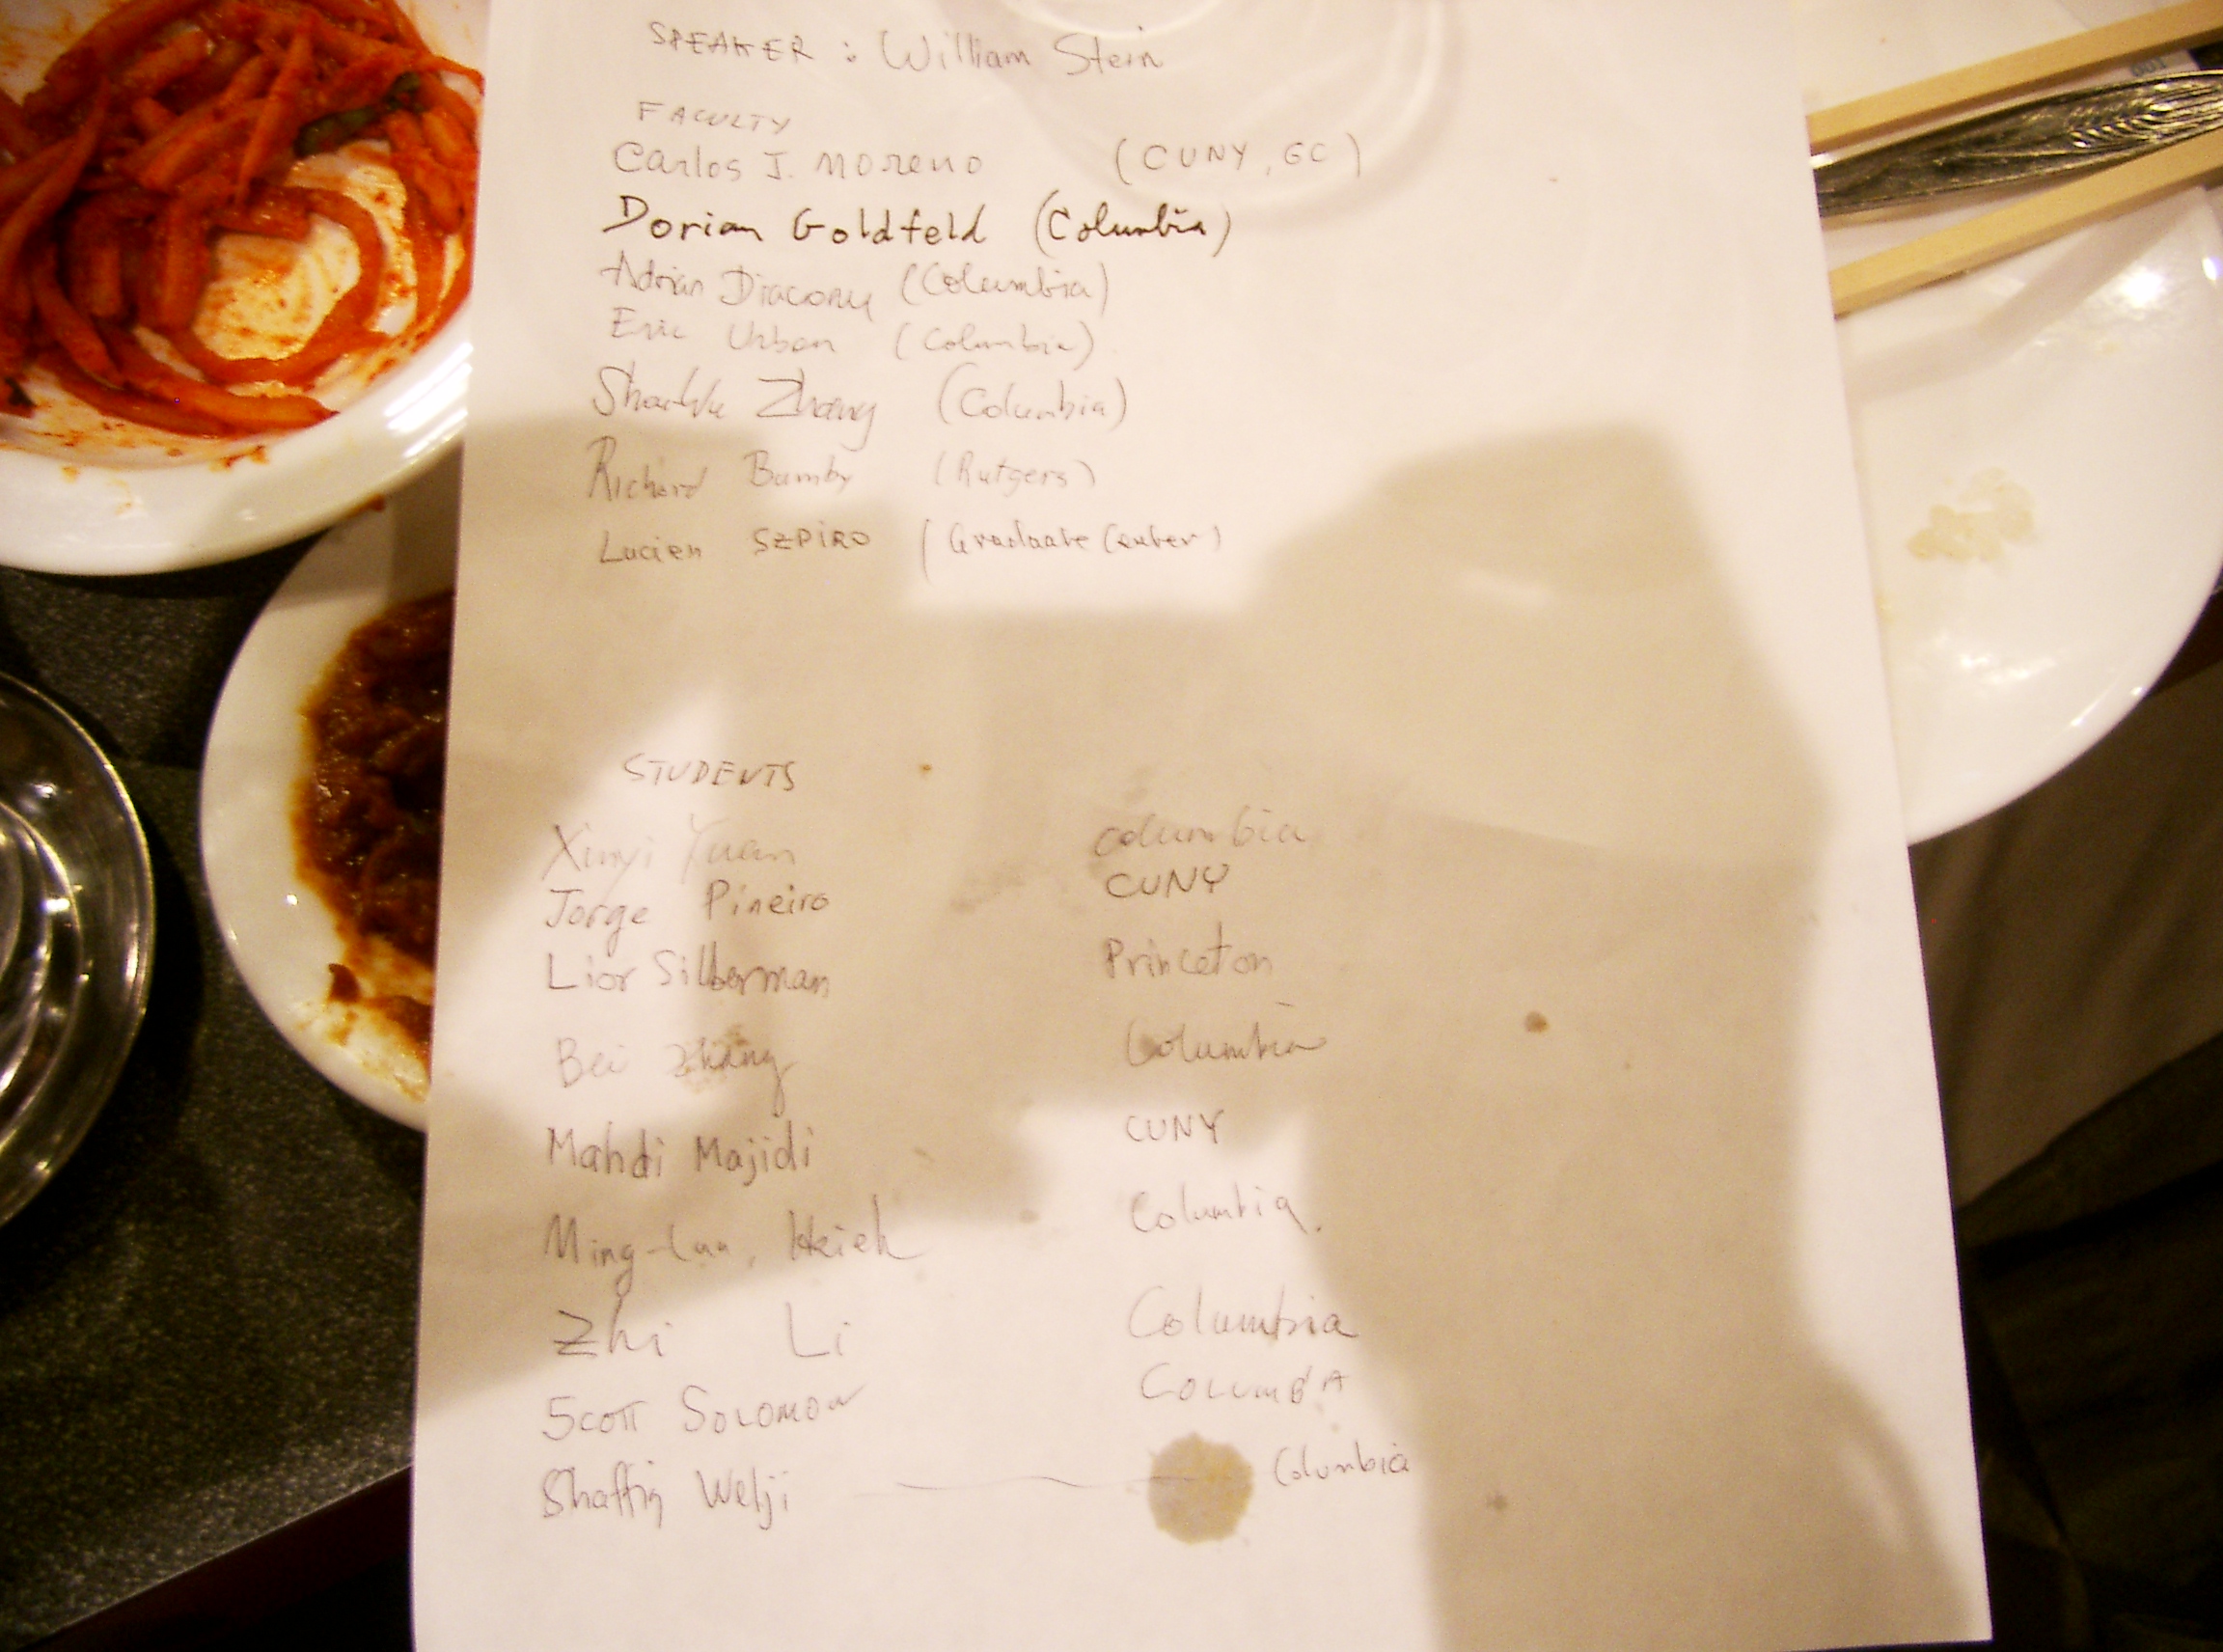 SPEAKER : William Stein
FACULTY
Carlos J. Moreno (CUNY, GC)
Dorian Goldfeld (Columbia)
Adrian Diaconu (Columbia)
Eric Urban (Columbia)
ShouWu Zhang (Columbia)
Richard Bumby (Rutgers)
Lucien SZPIRO (Graduate Center)
STUDENTS
Xinyi Yuan columbia
Jorge Pineiro CUNY
Lior Silberman Princeton
Bei Zhang Columbia
Mahdi Majidi CUNY
Ming-Lun, Hsieh Columbia.
Zhi Li Columbia
SCOTT SOLOMON COLUMBIA
Shaffiq Welji Columbia